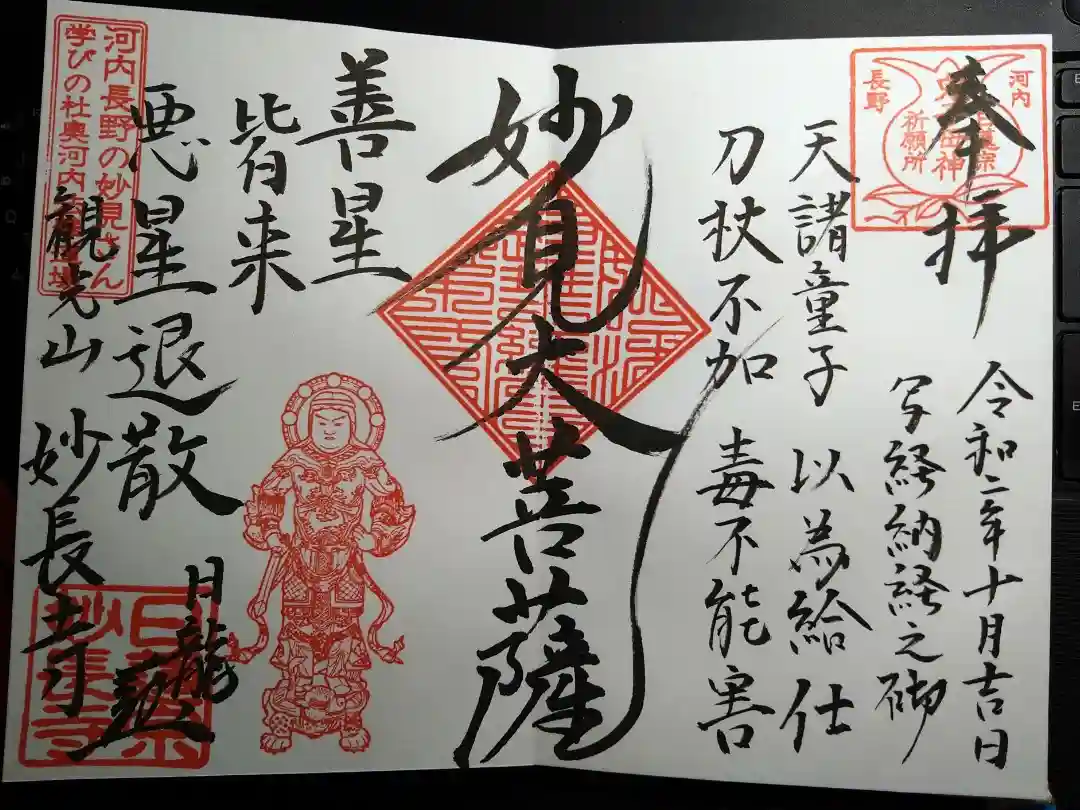 奉拝
河内
長野
祈願所
令和二年十月吉日
写経納経之砌
天諸童子 以為給仕
刀杖不加 毒不能害
妙見大菩薩
善星
皆来
悪星退散
日龍
観光山 妙長寺
河内長野の妙見さん
学びの杜奥河内